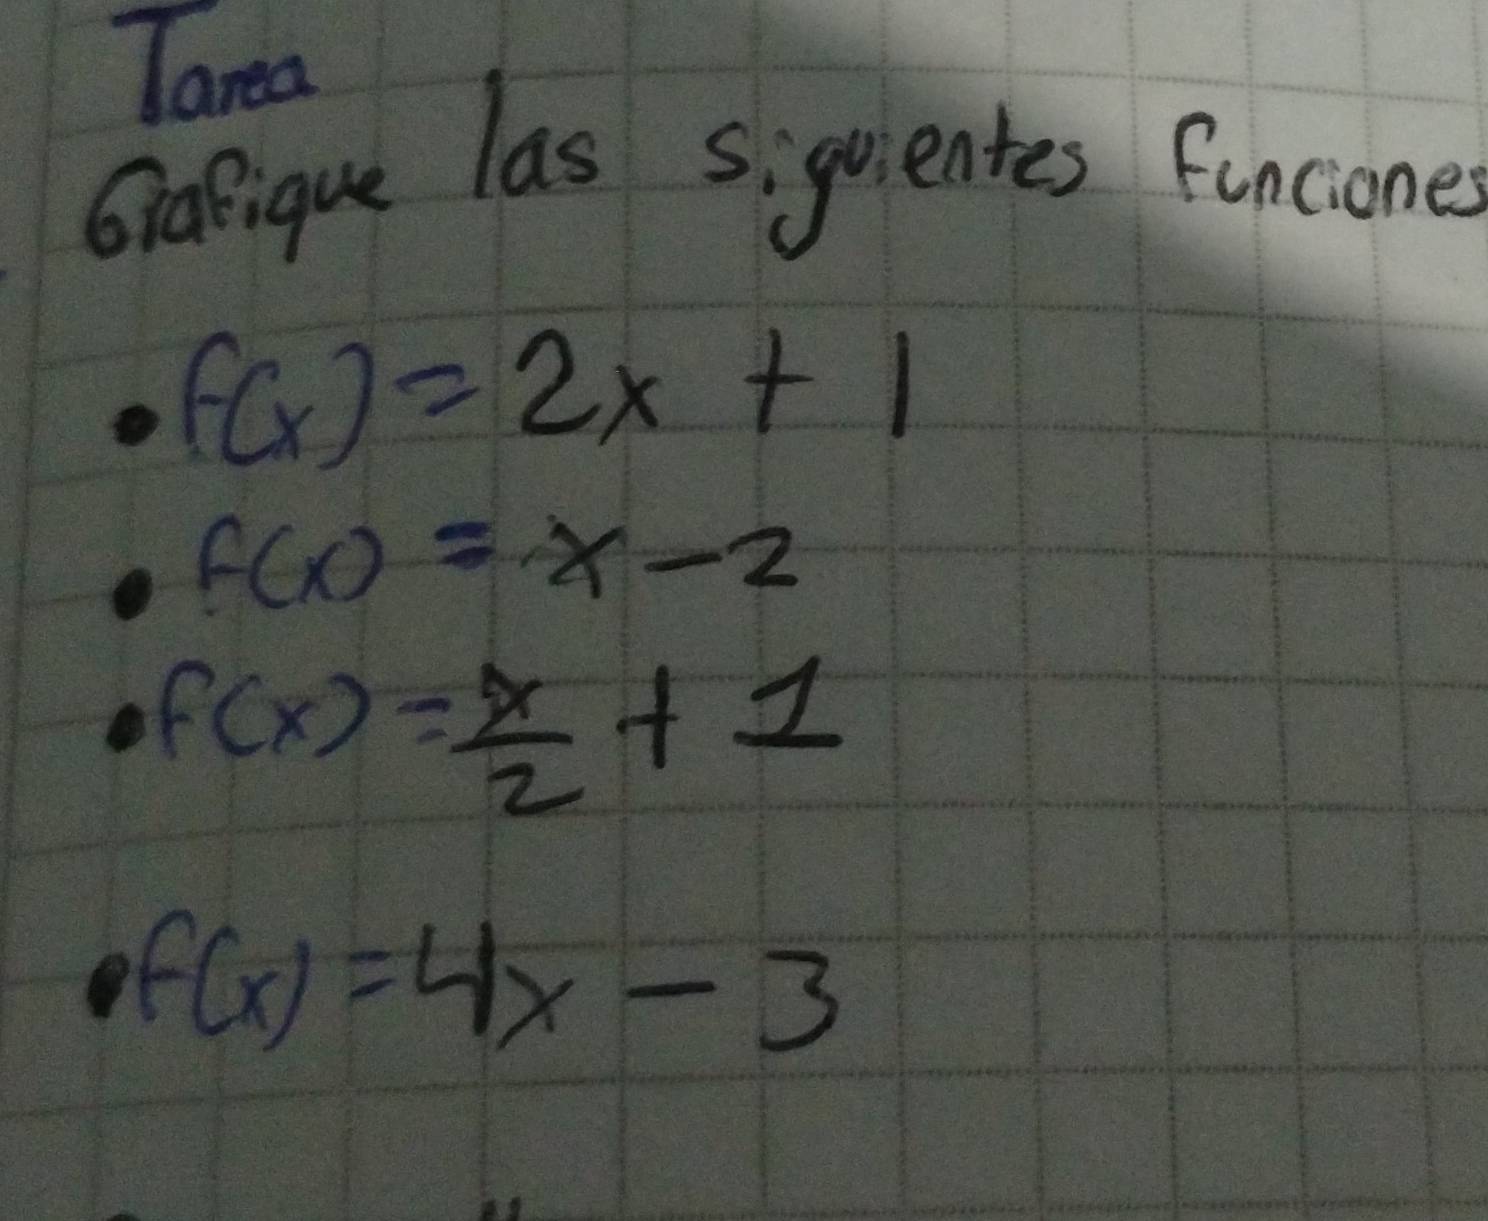 Tarea
Grafique las siguientes funciones
• f(x) = 2x + 1
• f(x) = x - 2
• f(x) = x/2 + 1
• f(x) = 4x - 3